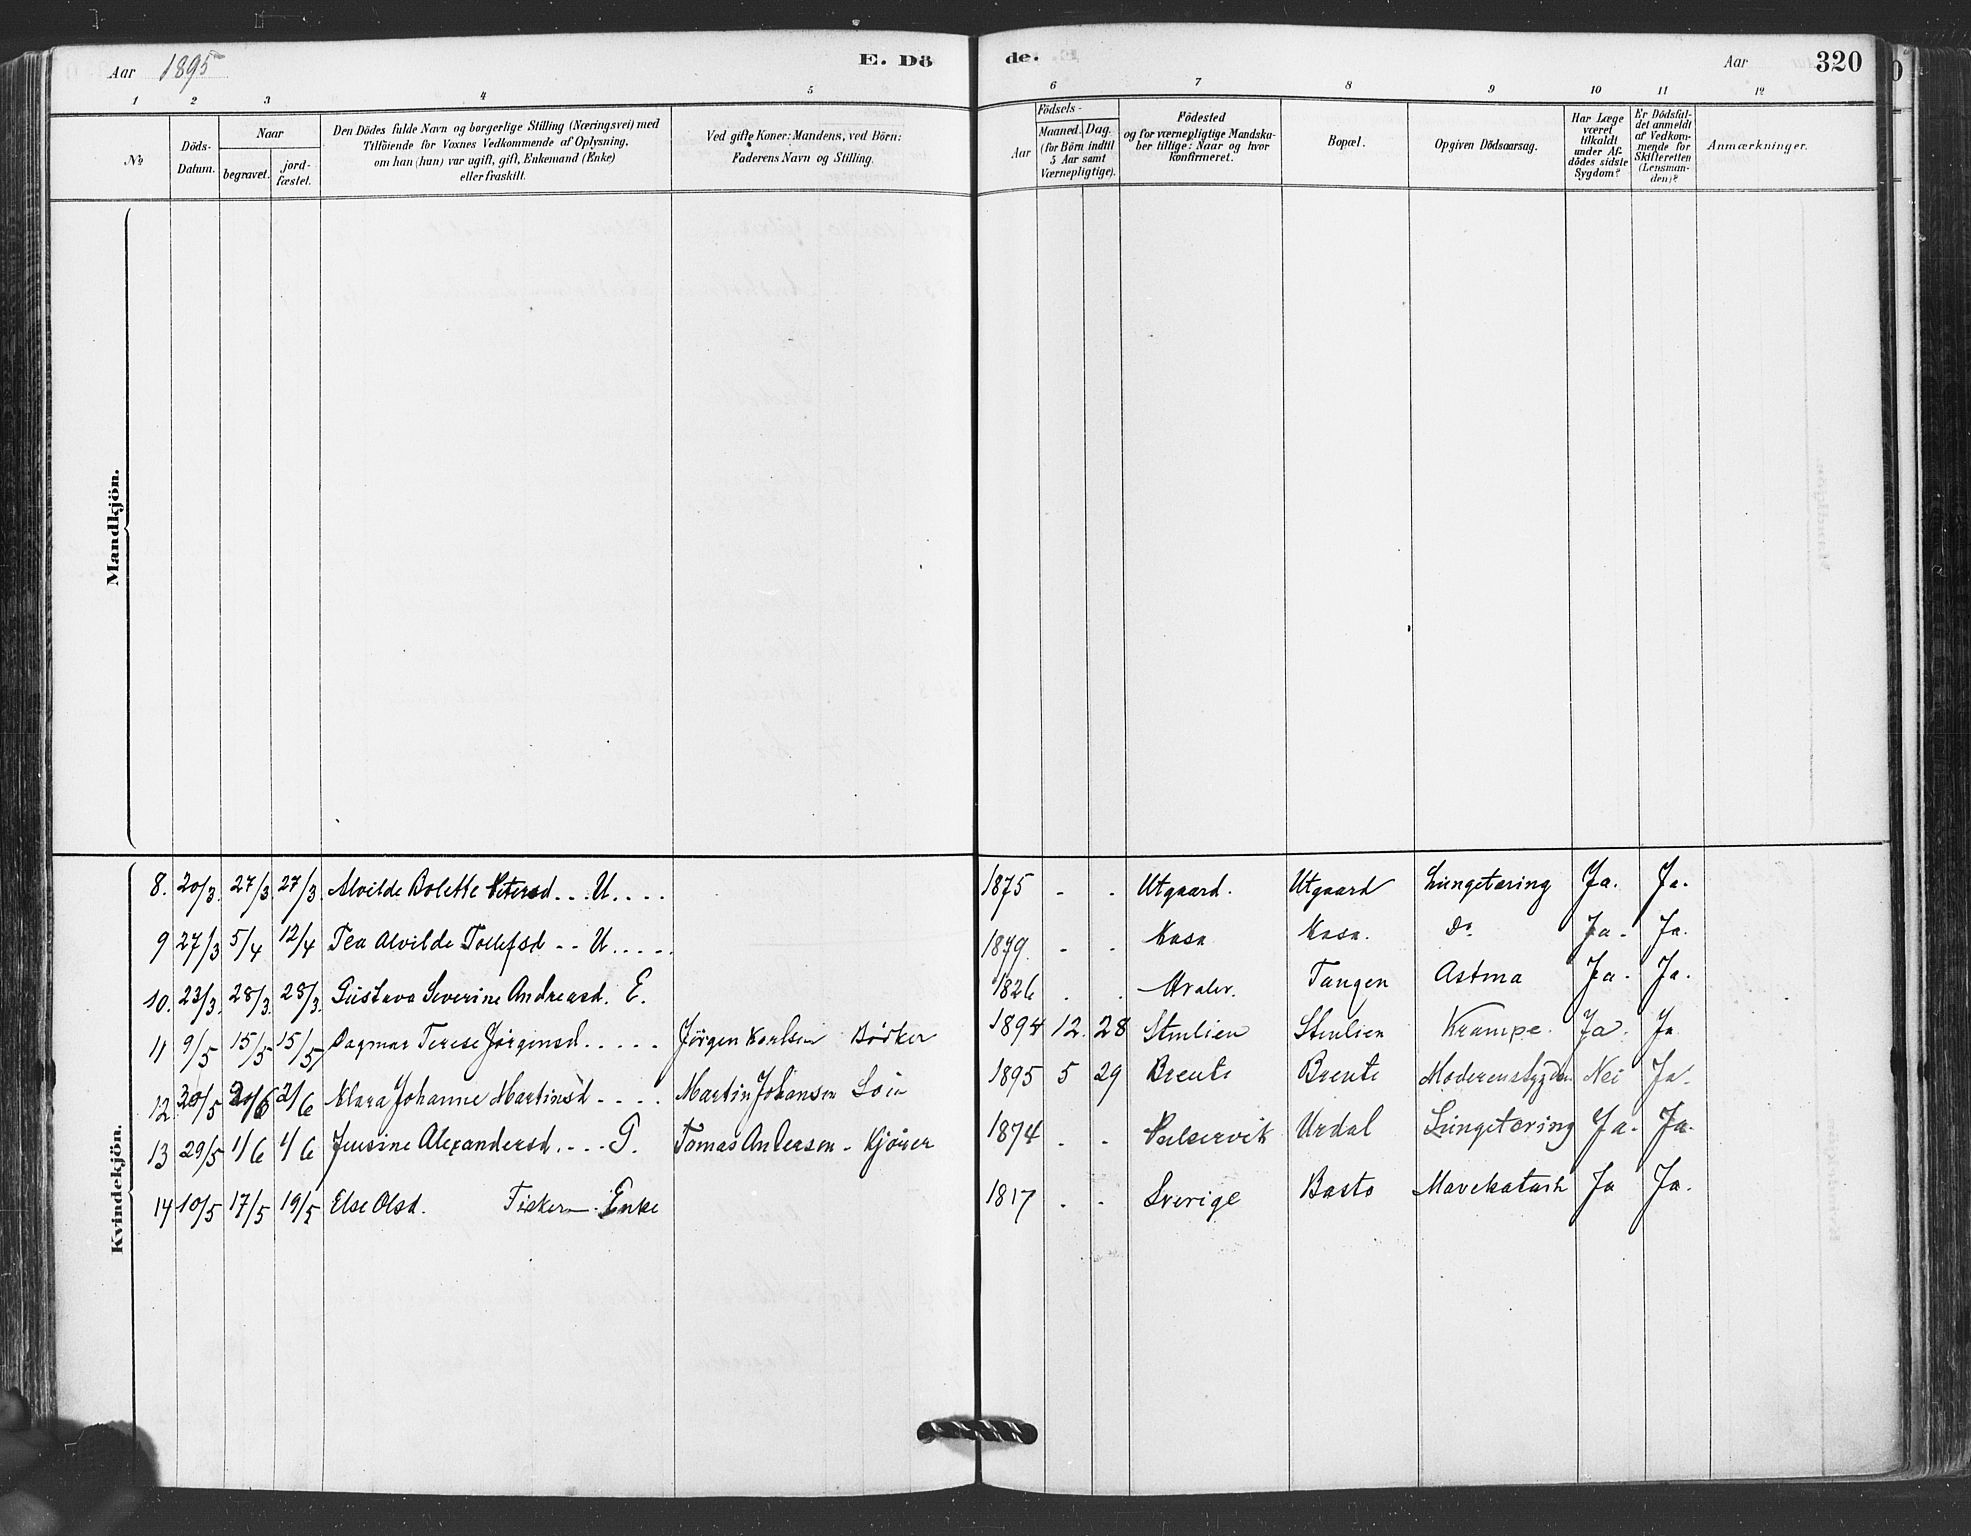 Aar 1895 E. Dö de. Aar 320
1 2 3 4 5 6 7 8 9 10 11 12
No
Döds-Datum.
Naar
begravet.
jordfæstet.
Den Dödes fulde Navn og borgerlige Stilling (Næringsvei) med
Tilföiende for Voxnes Vedkommende af Oplysning,
om han (hun) var ugift, gift, Enkemand (Enke)
eller fraskilt.
Ved gifte Koner: Mandens, ved Börn:
Faderens Navn og Stilling.
Födsels-
Aar
Maaned. Dag.
(for Börn indtil
5 Aar samt
Værnepligtige).
Födested
og for værnepligtige Mandska-
ber tillige: Naar og hvor
konfirmeret.
Bopæl.
Opgiven Dödsaarsag.
Har Læge
været
tilkaldt
under Af-
dödes sidste
Sygdom?
Er Dödsfal-
det anmeldt
af Vedkom-
mende for
Skifteretten
(Lensman-
den)?
Anmærkninger.
Mandkjön.
Kvindekjön.
8. 20/3. 27/3. 27/3 Alvilde Bolette Petersd... U.... 1875 - - Utgaard. Utgaard Lungetæring Ja. Ja.
9 27/3 5/4 12/4 Tea Alvilde Tollefsd -- U..... - - Kasa Kasa. Do Ja. Ja.
10. 23/3. 28/3. 28/3. Gustava Severine Andreasd. E. 1826 . . Hvaler. Tangen Astma Ja. Ja.
11 9/5 15/5 15/5 Dagmar Terese Jørgensd..... Jørgen Karlsen Bødker 1894 12. 28 Stenlien Stenlien Krampe. Ja. Ja.
12 20/5 2/6 Klara Johanne Martinsd.... Martin Johansen 1895 5 29 Brente Brente Nei Ja.
13 29/5 1/6 1/6 Jensine Alexandersd.... G. Tomas Andersen - 1874 - - Urdal Lungetæring Ja. Ja.
14 10/5 17/5 19/5 Else Olsd. Fisker - Enke 1817 . . Sverige Basto Mavekatarh Ja Ja.